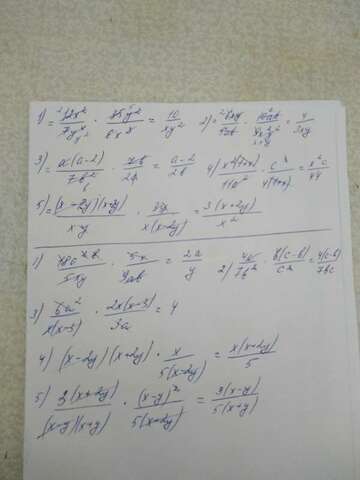 1) = 12x² / 7y⁴ · 35y² / 6x³ = 10 / xy²   2) = 8xy / 9ab · = 4 / 3xy
3) = a(a-2) / 7b² · 7b / 2a = a-2 / 2b   4) c³ = x²c / 44
5) = (x-2y)(x+2y) / xy · 3y / x(x-2y) = 3(x+2y) / x²
1) 18a²b / 5xy · 5x / 9ab = 2a / y   2) 4c / 7b² · b(c-b) / c² = 4(c-b) / 7bc
3) 6a² / x(x-3) · 2x(x-3) / 3a = 4
4) (x-2y)(x+2y) · x / 5(x-2y) = x(x+2y) / 5
5) 3(x+2y) / (x-y)(x+y) · (x-y)² / 5(x+2y) = 3(x-y) / 5(x+y)